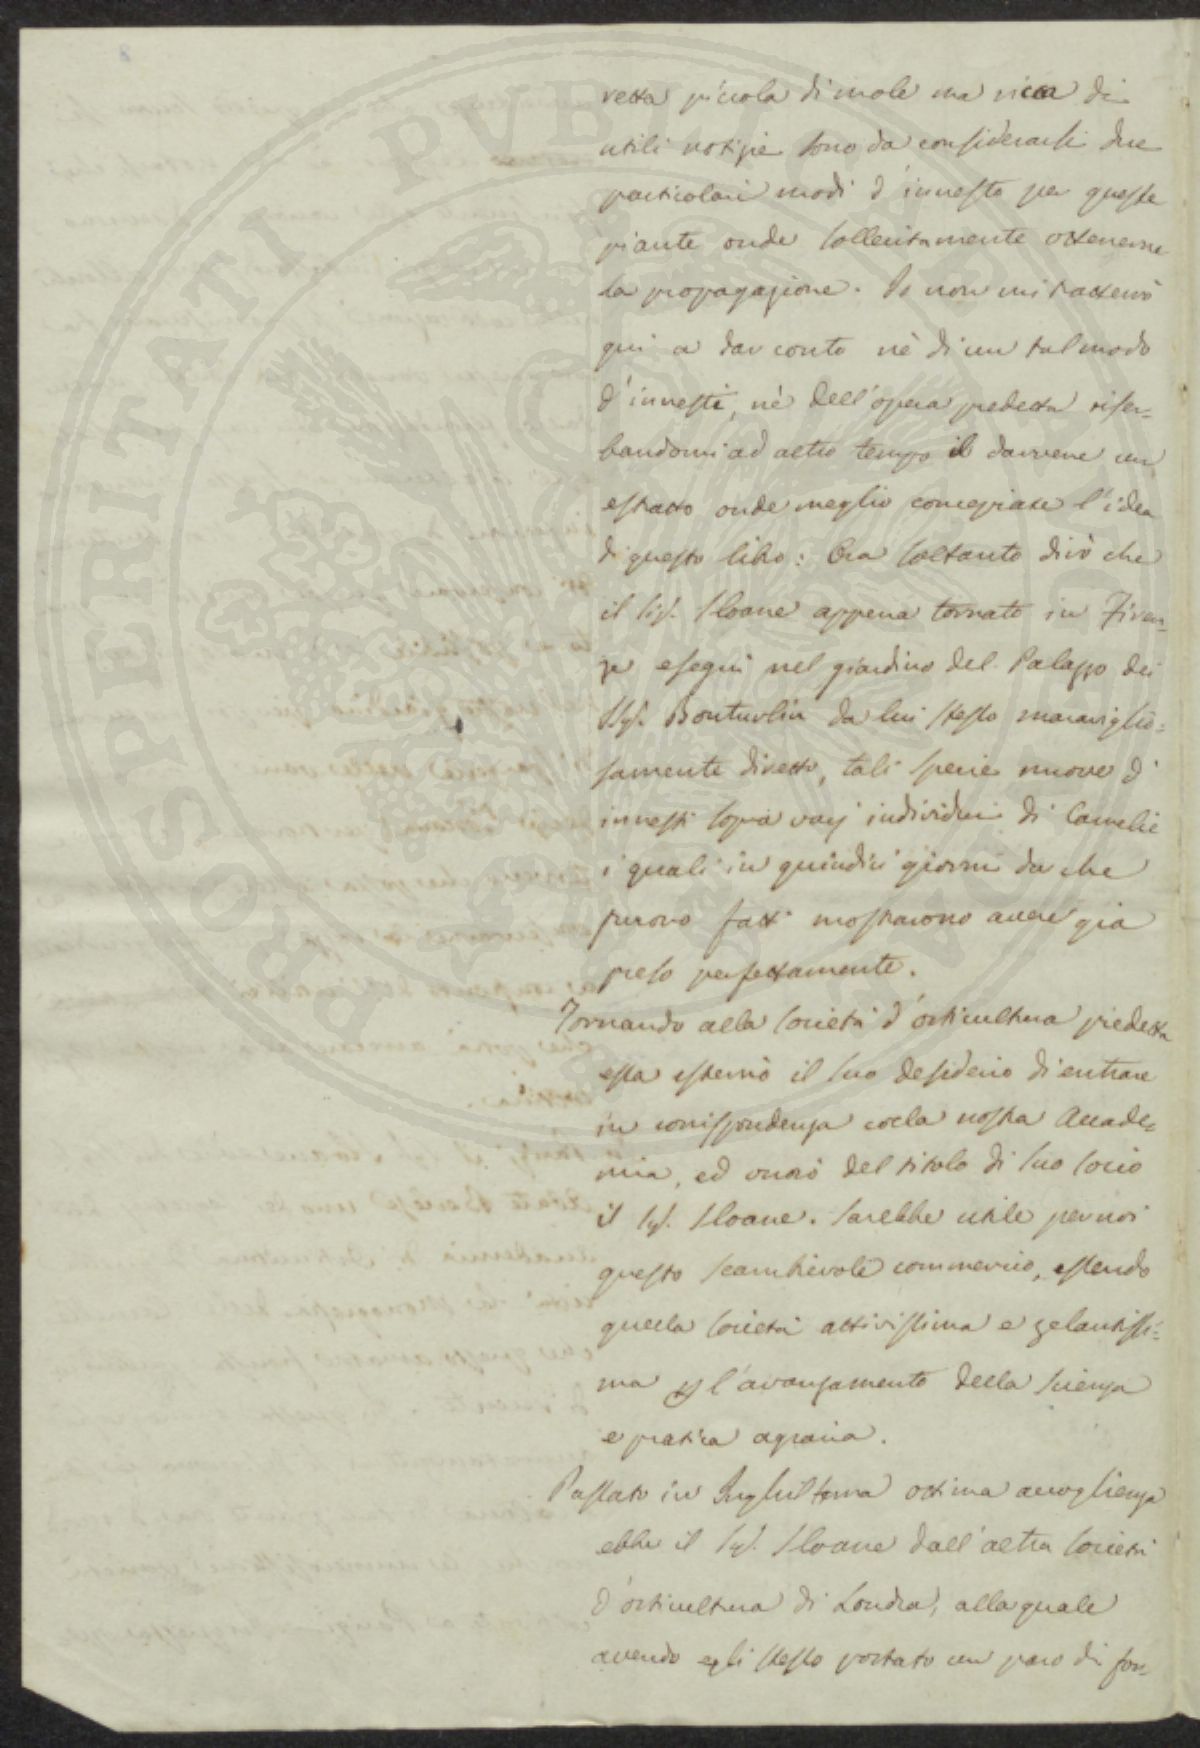 retta piccola di mole ma ricca di
utili notizie sono da considerarsi due
particolari modi d'innesto per queste
piante onde sollecitamente ottenerne
la propagazione. Io non mi tratterrò
qui a dar conto nè di un tal modo
d'innesti, nè dell'opera predetta riser=
bandomi ad altro tempo il darvene un
estratto onde meglio concepiate l'idea
di questo libro: Ora soltanto dirò che
il Sig. Sloane appena tornato in Firen=
ze eseguì nel giardino del Palazzo dei
SSig. Bouturlin da lui stesso maraviglio=
samente diretto, tali specie nuove d'
innesti sopra varj individui di Camelie
i quali in quindici giorni da che
furono fatti mostrarono avere già
preso perfettamente.
Tornando alla Società d'orticultura predetta
essa esternò il suo desiderio di entrare
in corrispondenza colla nostra Accade=
mia, ed onorò del titolo di suo socio
il Sig. Sloane. Sarebbe utile per noi
questo scambievole commercio, essendo
quella Società attivissima e zelantissi=
ma per l'avanzamento della scienza
e pratica agraria.
Passato in Inghilterra ottima accoglienza
ebbe il Sig. Sloane dall'altra Società
d'orticultura di Londra, alla quale
avendo egli stesso portato un paro di for=
PROSPERITATI PVBLICAE AVGENDAE
8